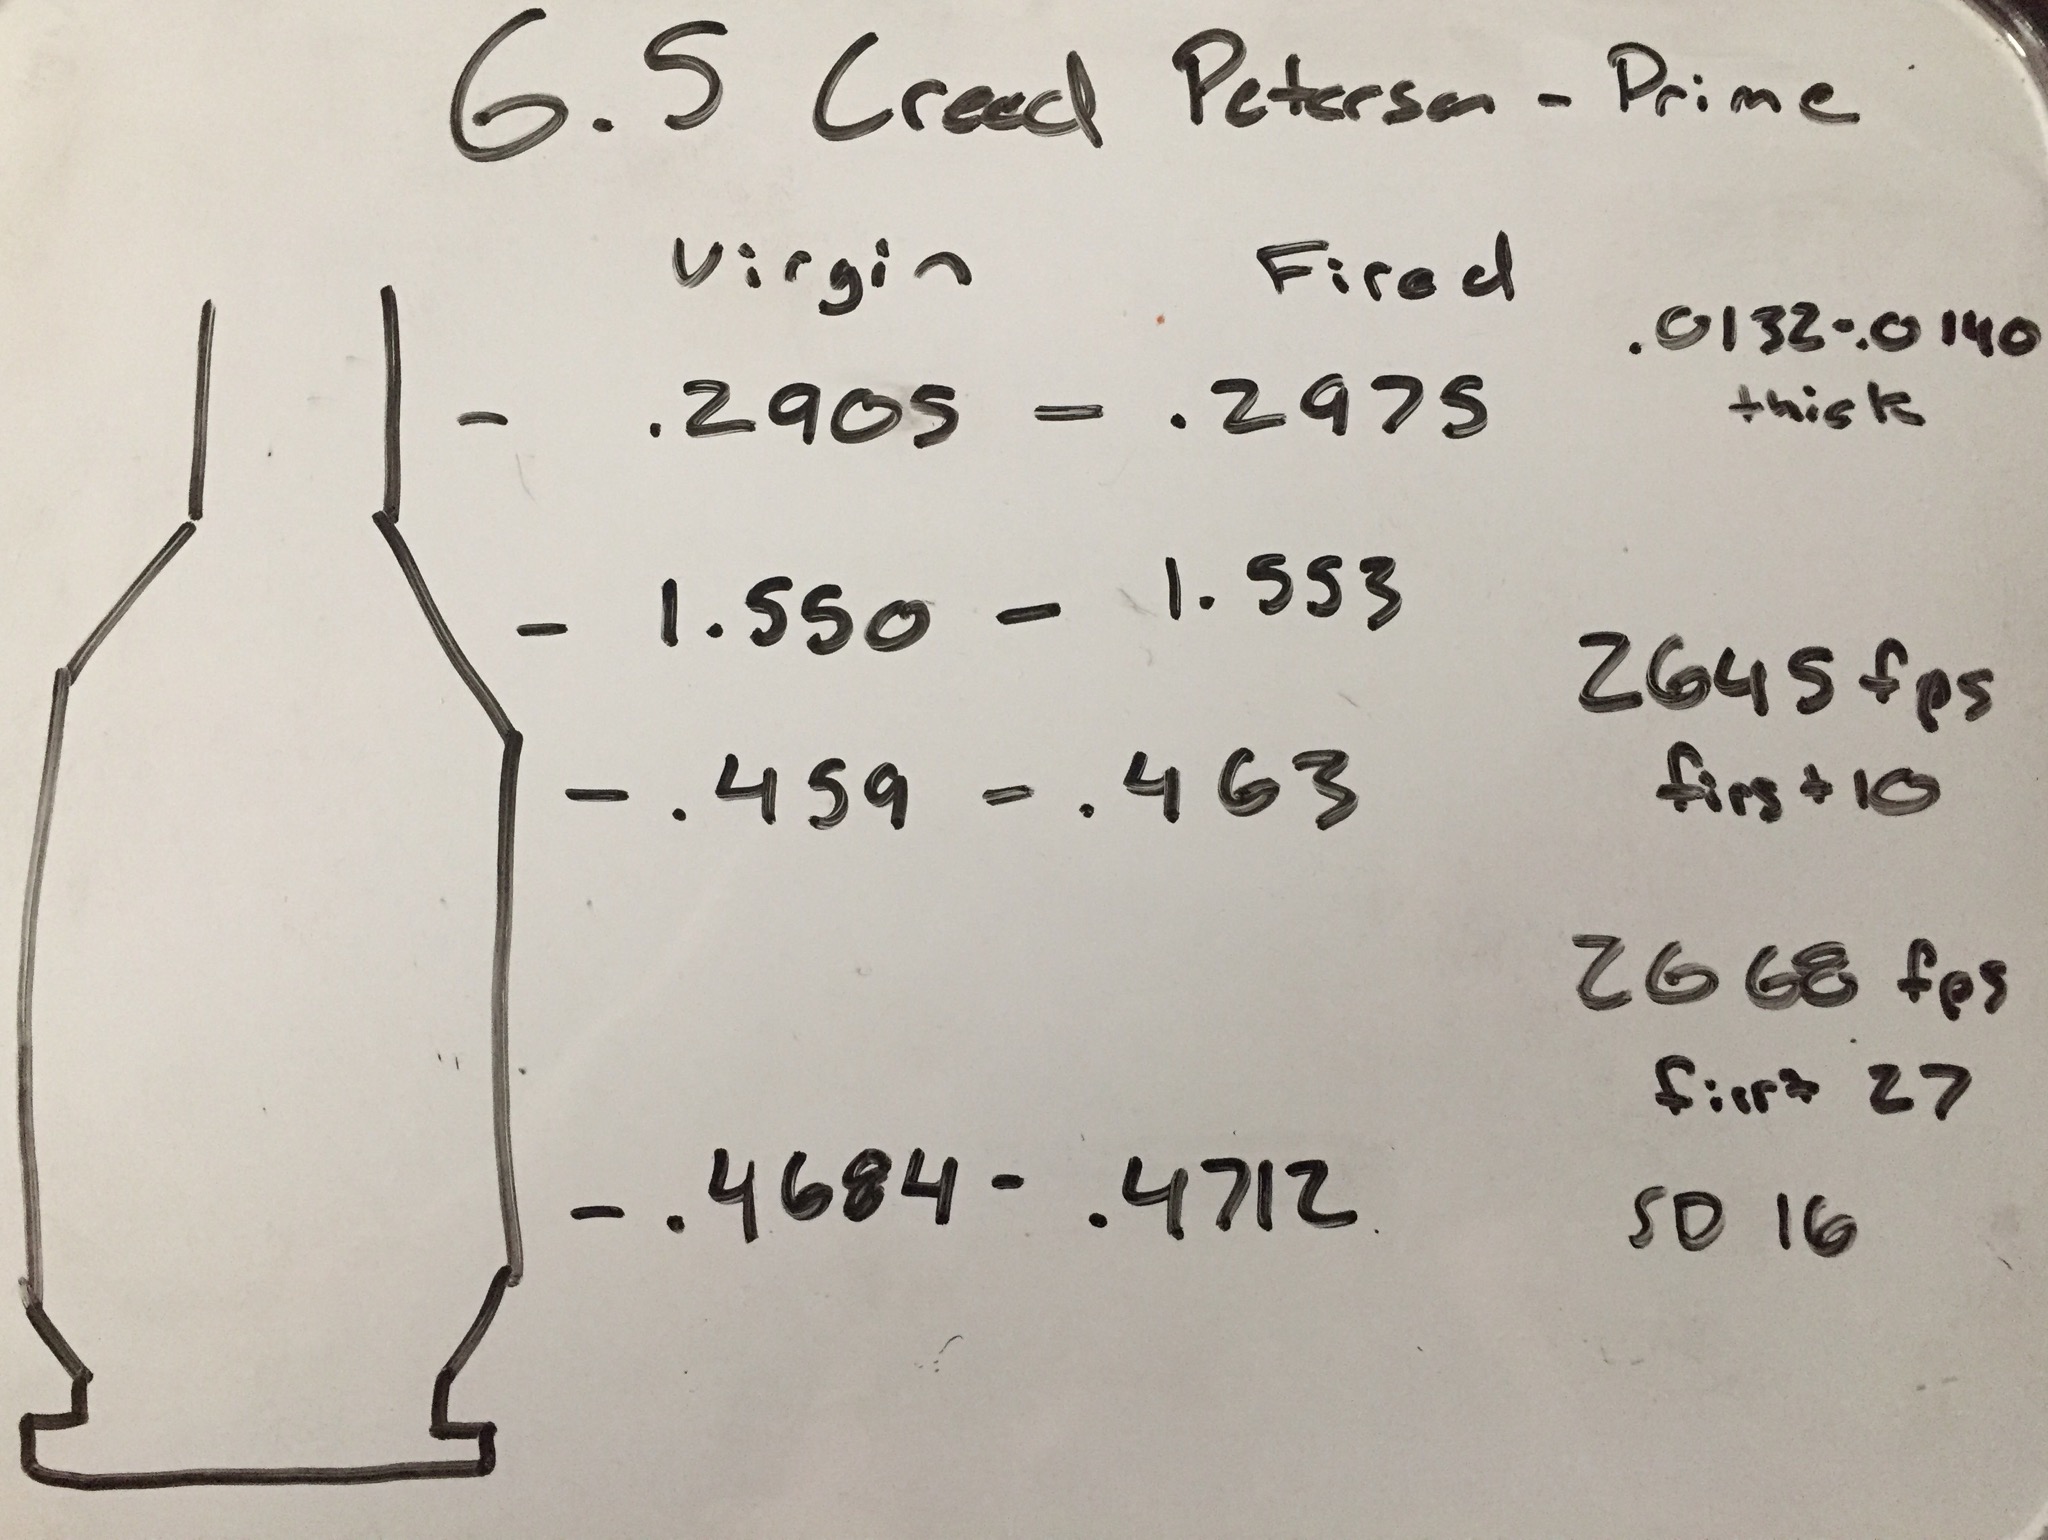 6.5 Creed Peterson - Prime
Virgin Fired
.0132-.0140
thick
- .2905 - .2975
- 1.550 - 1.553
2645 fps
first 10
- .459 - .463
2668 fps
first 27
- .4684 - .4712
SD 16